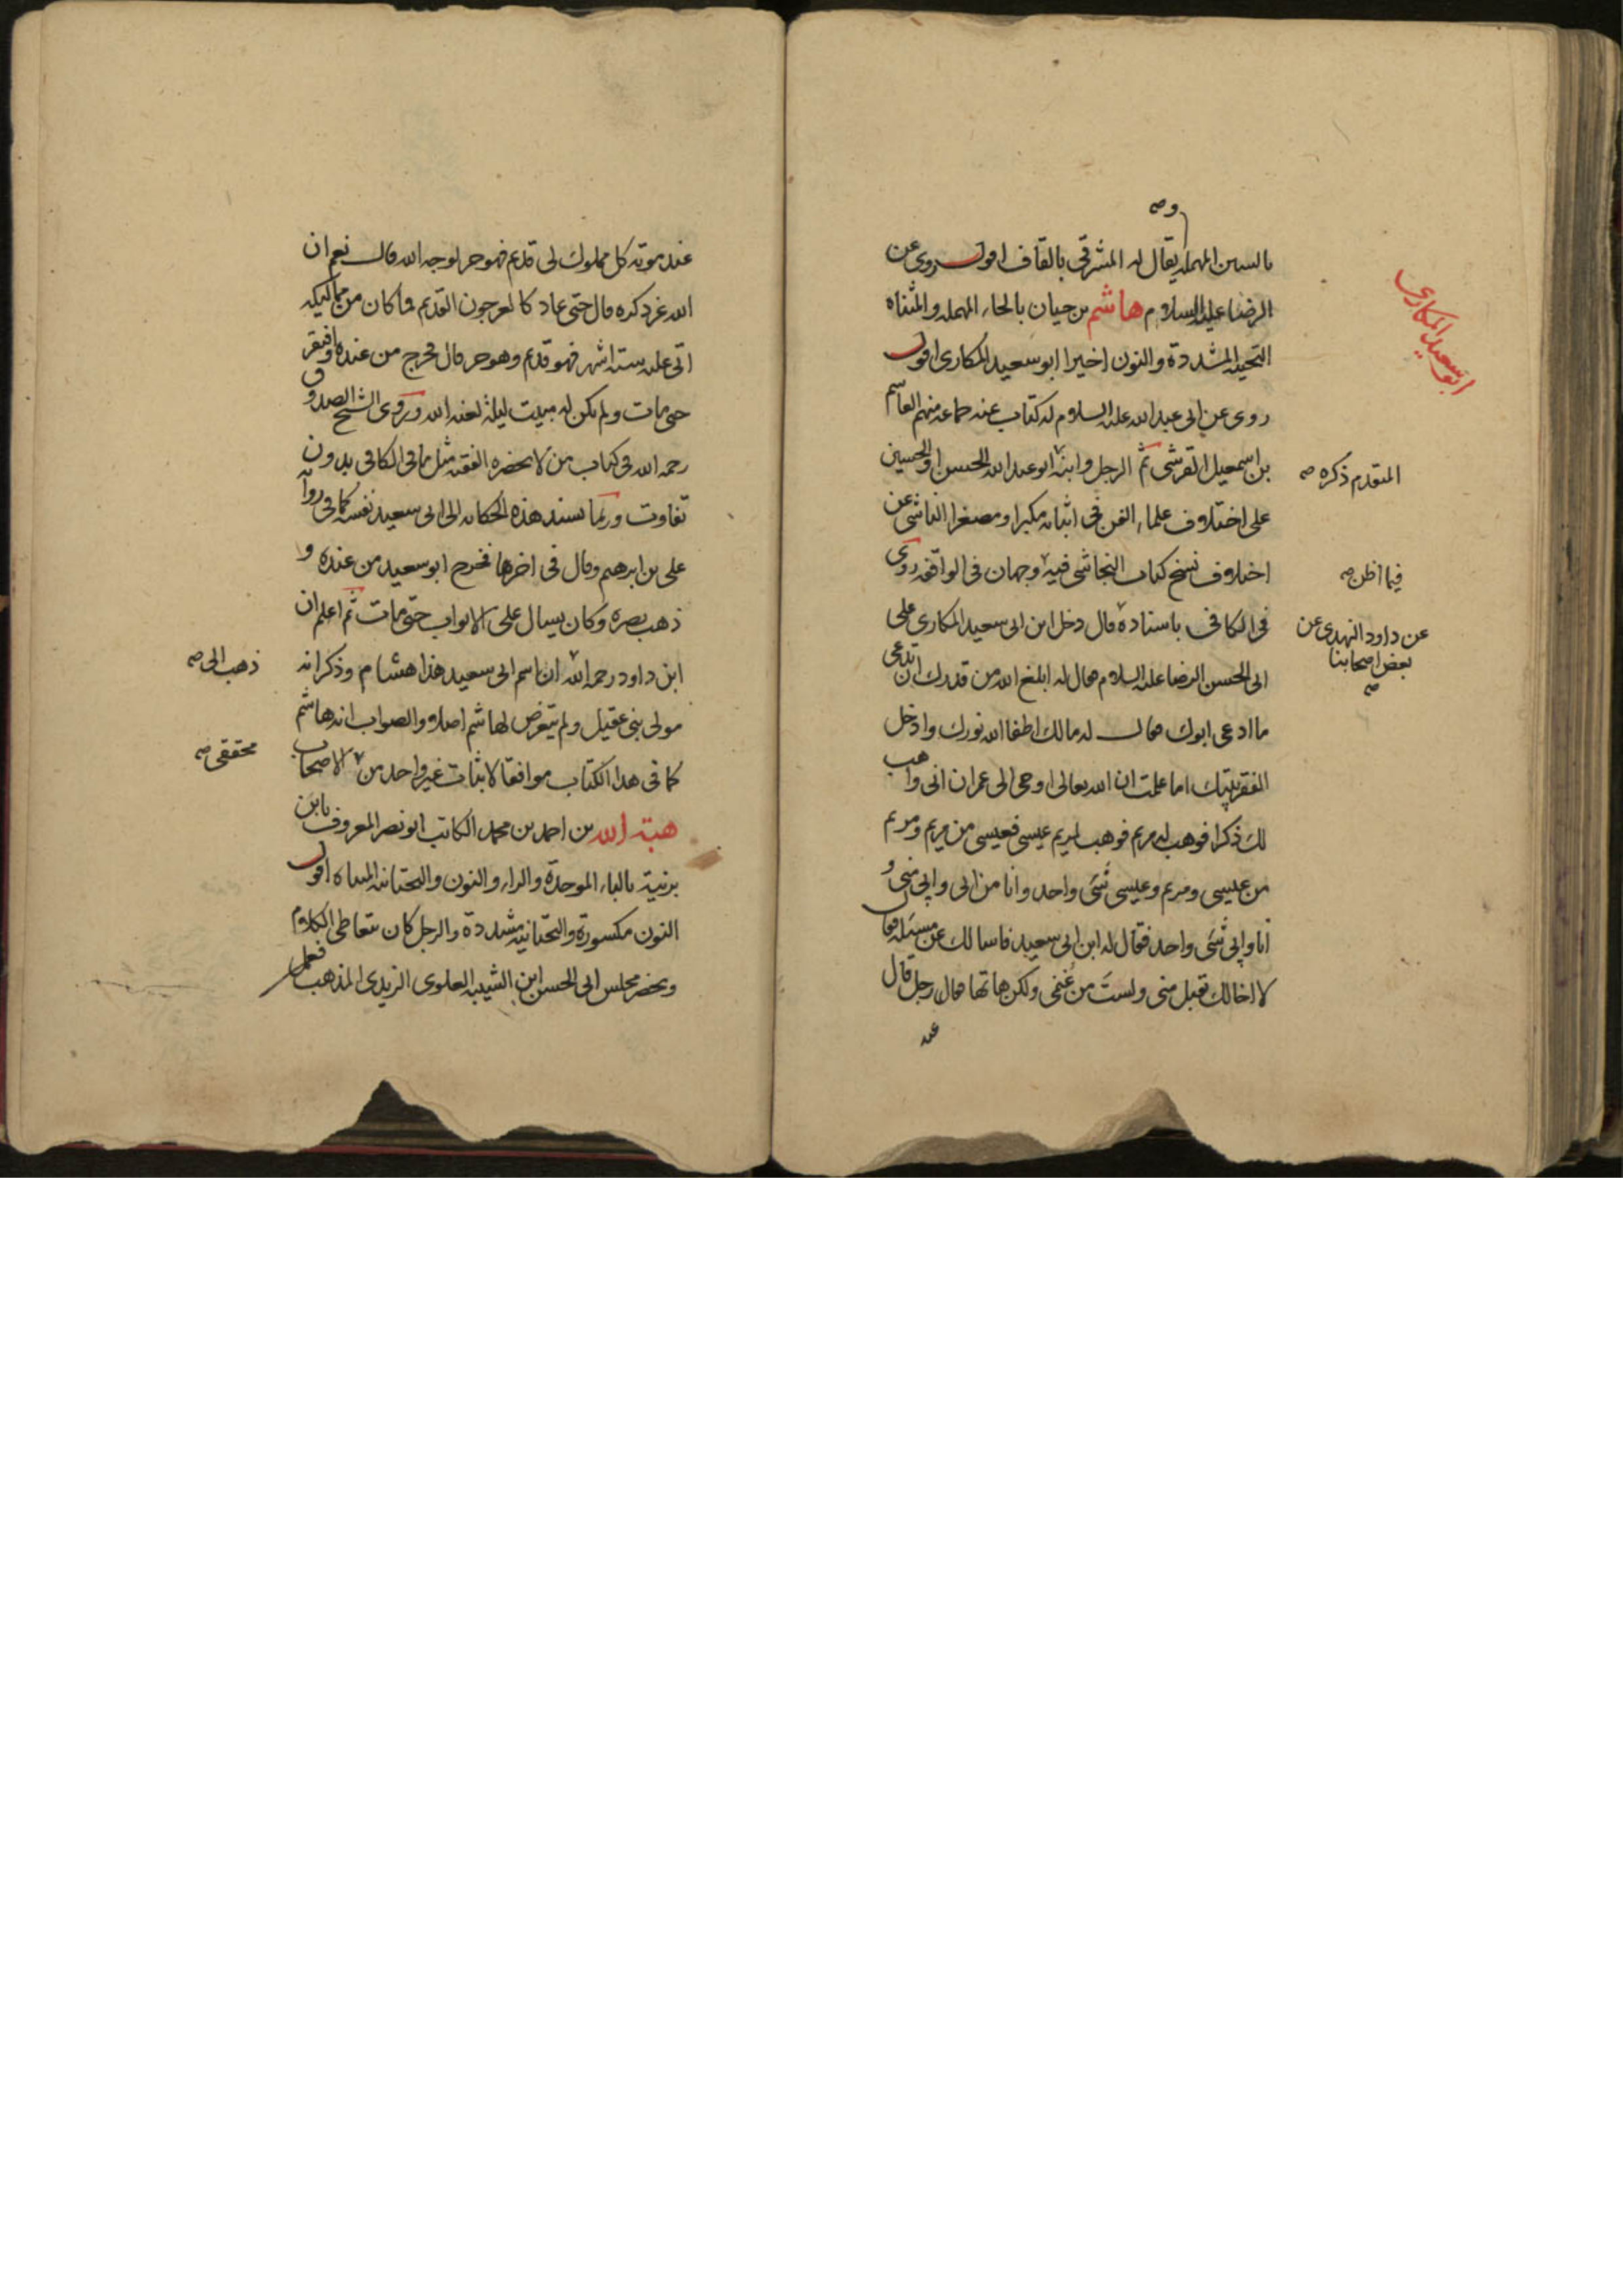 وصه
بالسين المهمله يقال له المشرقي بالقاف اقول روى عن
الرضا عليه السلام هاشم بن حيان بالحاء المهمله والمثناه
التحتيه المشددة والنون اخيرا ابو سعيد المكارى اقول
ابو سعيد المكارى
روى عن ابى عبد الله عليه السلام له كتاب عنه جماعه منهم القاسم
بن اسمعيل القرشى ثم الرجل وابنه ابو عبد الله الحسن او الحسين
المتقدم ذكره صه
على اختلاف علماء الفن فى اثباته مكبرا ومصغرا الناشى عن
اختلاف نسخ كتاب النجاشى فيه وجهان فى الواقفه روى
فيما اظن صه
فى الكافى باسناده قال دخل ابن ابى سعيد المكارى على
عن داود النهدى عن
بعض اصحابنا
صه
ابى الحسن الرضا عليه السلام فقال له ابلغ الله من قدرك ان تدعى
ما ادعى ابوك فقال له مالك اطفا الله نورك وادخل
الفقر بيتك اما علمت ان الله تعالى اوحى الى عمران انى واهب
لك ذكرا فوهب له مريم فوهب لمريم عيسى فعيسى من مريم ومريم
من عيسى ومريم وعيسى شئ واحد وانا من ابى وابى منى و
انا وابى شئ واحد فقال له ابن ابى سعيد فاسالك عن مسئله فقال
لا اخالك تقبل منى ولست من غنمى ولكن هاتها فقال رجل قال
عند
عند موته كل مملوك لى قديم فهو حر لوجه الله قال نعم ان
الله عز ذكره قال حتى عاد كالعرجون القديم فما كان من مماليكه
اتى عليه سته اشهر فهو قديم وهو حر قال فخرج من عنده وافتقر
حتى مات ولم يكن له مبيت ليلة لعنه الله وروى الشيخ الصدوق
رحمه الله فى كتاب من لا يحضره الفقيه مثل ما فى الكافى بدون
تفاوت وربما يسند هذه الحكايه الى ابى سعيد نفسه كما فى رواية
على بن ابرهيم وقال فى اخرها فخرج ابو سعيد من عنده و
ذهب بصره وكان يسال على الابواب حتى مات ثم اعلم ان
ابن داود رحمه الله ان اسم ابى سعيد هذا هشام وذكر انه
ذهب الى صه
مولى بنى عقيل ولم يتعرض لهاشم اصلا والصواب انه هاشم
كما فى هذا الكتاب موافقا لاثبات غير واحد من الاصحاب
محققى صه
هبة الله بن احمد بن محمد الكاتب ابو نصر المعروف بابن
برنية بالباء الموحدة والراء والنون والتحتانيه المثناه اقول
النون مكسورة والتحتانيه مشددة والرجل كان يتعاطى الكلام
ويحضر مجلس ابى الحسن ابن الشبيه العلوى الزيدى المذهب فعمل